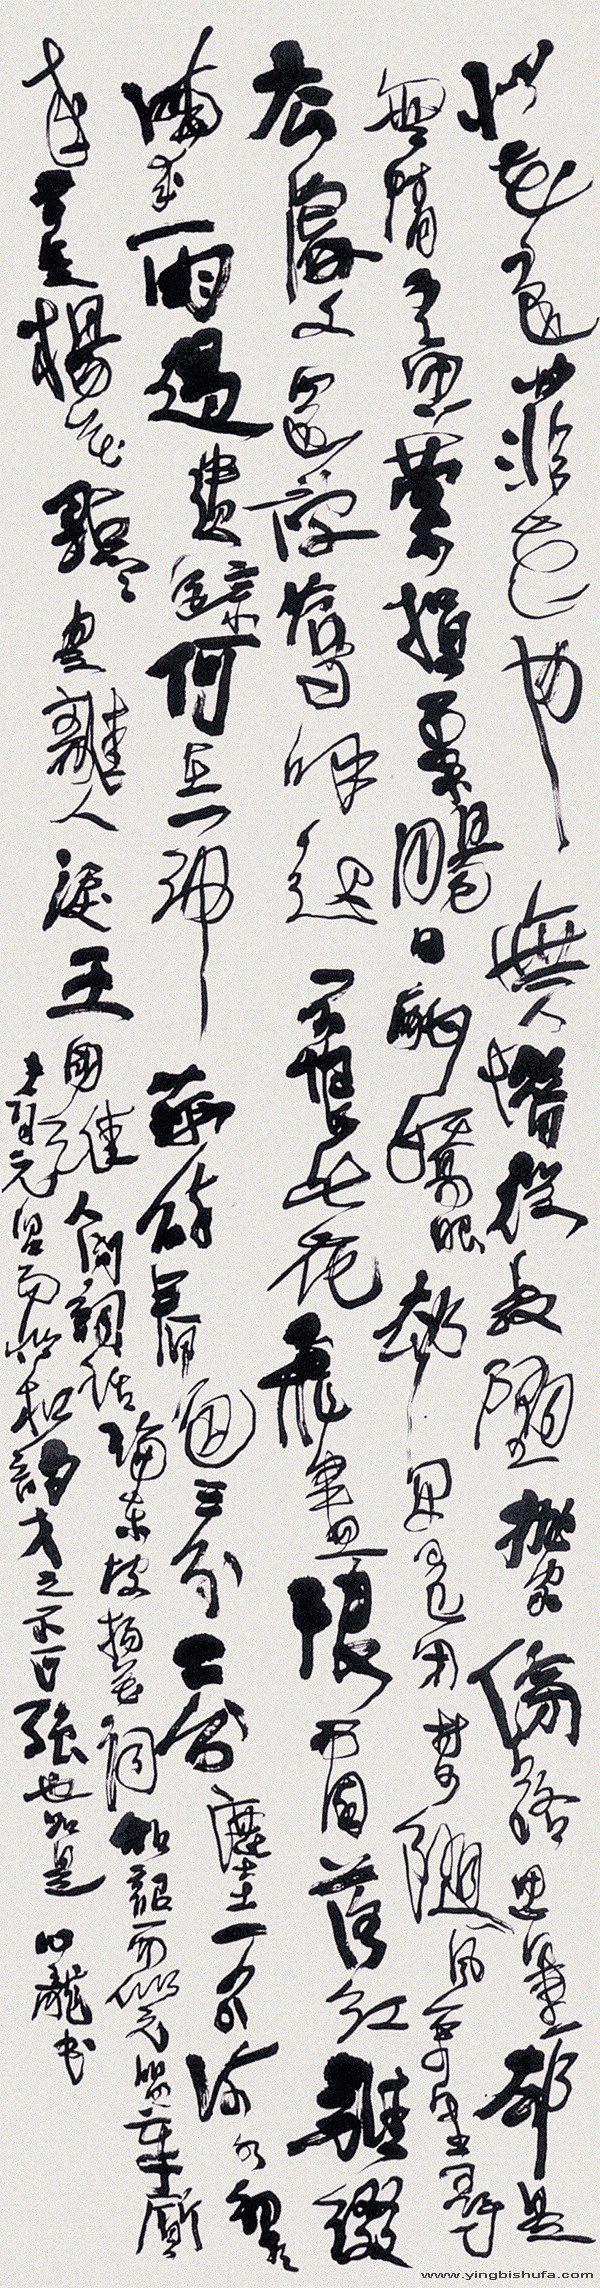 似花還似非花也無人惜從教墜拋家傍路思量卻是
無情有思縈損柔腸困酣嬌眼欲開還閉夢隨風萬里尋
郎去處又還被鶯呼起不恨此花飛盡恨西園落紅難綴
曉來雨過遺蹤何在一池萍碎春色三分二分塵土一分流水細看
來不是楊花點點是離人淚王國維人間詞話東坡楊花詞和韻而似元唱章質
夫詞元唱而似和韻才之不可強也如是龍書
www.yingbishufa.com